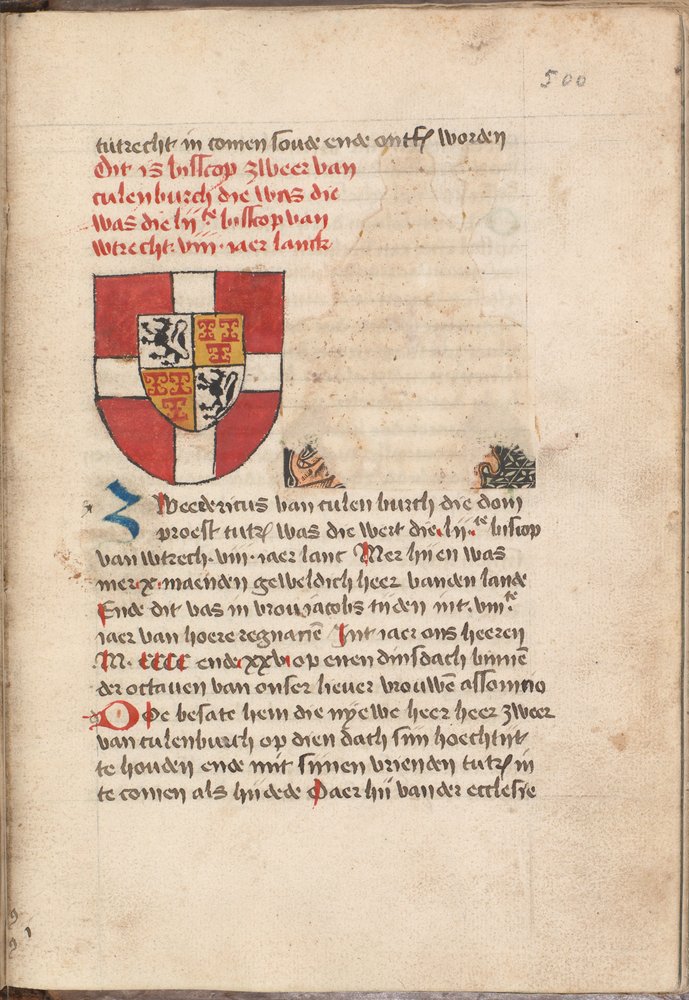 500
tutrecht in comen soude ende ontfē worden
Dit is bisscop zweer van
culenburch die was die
was die lij te bisscop van
wtrecht. viij. iaer lanck
Zweedericus van culenburch die dom
proest tutr was die wert die lij. te biscop
van wtrech. viij. iaer lanc Mer hi en was
mer .x. maenden geweldich heer vanden lande
Ende dit was in vrou iacobs tijden int. viij te
iaer van hoere regnacien̄ Int iaer ons heeren
M. cccc ende xxvi op enen dinsdach binnē
der octauen van onser lieuer vrouwē assomcio
Doe besate hem die nyewe heer heer zweer
van culenburch op dien dach sijn hoechtijt
te houden ende mit sijnen vrienden tutr in
te comen als hij dede Daer hij van der ecclesie